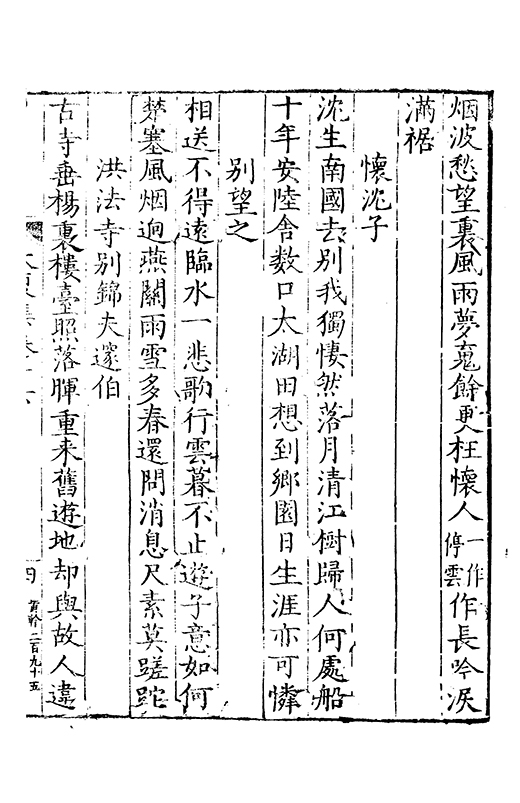 烟波愁望裏風雨夢䰟餘更枉懷人一作停雲作長吟淚
滿裾
懷沈子
沈生南國去別我獨悽然落月清江樹歸人何處船
十年安陸舍數口太湖田想到鄉園日生涯亦可憐
別望之
相送不得遠臨水一悲歌行雲暮不止遊子意如何
楚塞風烟逈燕關雨雪多春還問消息尺素莫蹉跎
洪法寺別錦夫邃伯
古寺垂楊裏樓臺照落暉重来舊遊地却與故人違
四 二百九十五